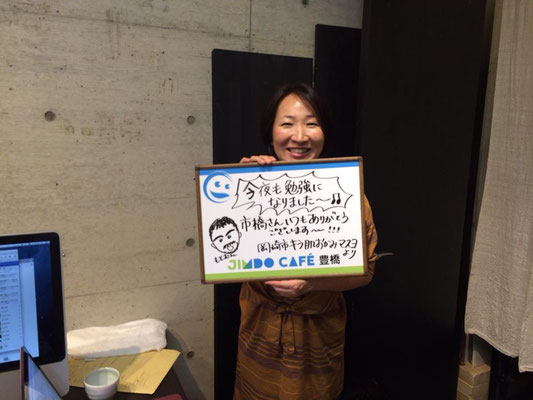 今夜も勉強に
なりました〜♫
市橋さん、いつもありがとう
ございます〜!!!
岡崎市キラ肌おかみマスヨ
より
JIMDO CAFÉ 豊橋